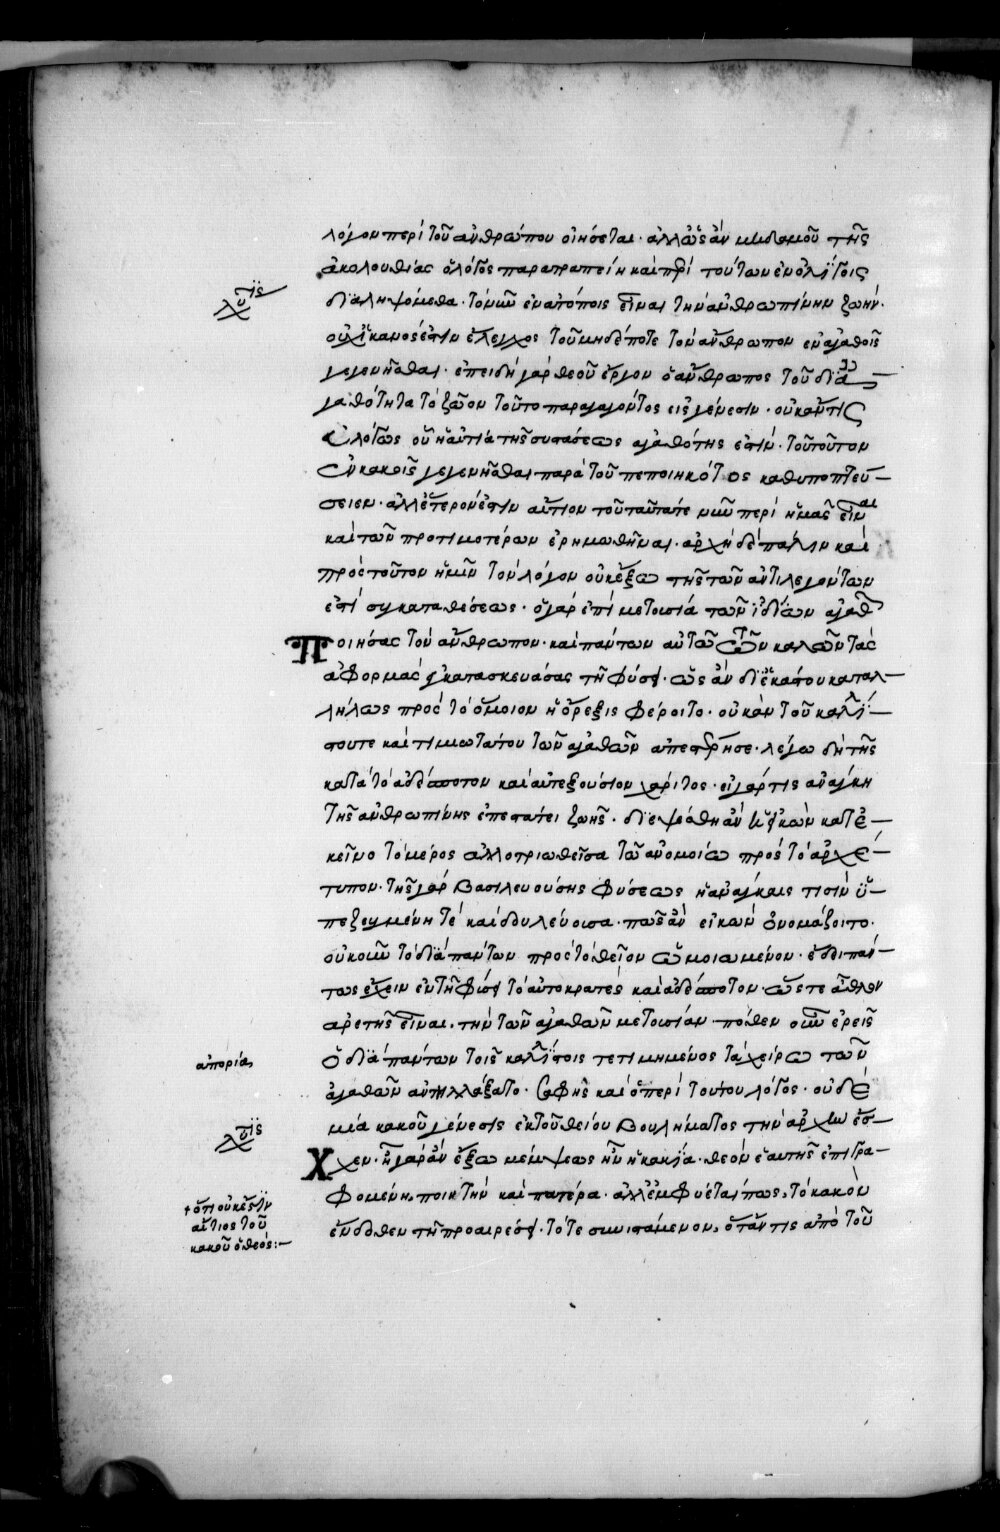 λόγον περὶ τοῦ ἀνθρώπου οἰήσεται. ἀλλ' ὡς ἂν μηδαμοῦ τῆς
ἀκολουθίας ὁ λόγος παρατραπείη καὶ περὶ τούτων ἐν ὀλίγοις
λύσις
διαληψόμεθα. τὸ νῦν ἐν ἀτόποις εἶναι τὴν ἀνθρωπίνην ζωήν.
οὐχ ἱκανός ἐστιν ἔλεγχος τοῦ μηδέποτε τὸν ἄνθρωπον ἐν ἀγαθοῖς
γεγενῆσθαι. ἐπειδὴ γὰρ θεοῦ ἔργον ὁ ἄνθρωπος τοῦ δι' ἀ-
γαθότητα τὸ ζῶον τοῦτο παραγαγόντος εἰς γένεσιν. οὐκ ἄν τις
εὐλόγως οὗ ἡ αἰτία τῆς συστάσεως ἀγαθότης ἐστίν. τοῦτον
ἐν κακοῖς γεγενῆσθαι παρὰ τοῦ πεποιηκότος καθυποπτεύ-
σειεν. ἀλλ' ἕτερόν ἐστιν αἴτιον τοῦ ταῦτά τε νῦν περὶ ἡμᾶς εἶναι
καὶ τῶν προτιμοτέρων ἐρημωθῆναι. ἀρχὴ δὲ πάλιν καὶ
πρὸς τοῦτον ἡμῖν τὸν λόγον οὐκ ἔξω τῆς τῶν ἀντιλεγόντων
ἐστὶ συγκαταθέσεως. ὁ γὰρ ἐπὶ μετουσίᾳ τῶν ἰδίων ἀγαθῶν
Ποιήσας τὸν ἄνθρωπον. καὶ πάντων αὐτῷ τῶν καλῶν τὰς
ἀφορμὰς ἐγκατασκευάσας τῇ φύσει. ὡς ἂν δι' ἑκάστου καταλ-
λήλως πρὸς τὸ ὅμοιον ἡ ὄρεξις φέροιτο. οὐκ ἂν τοῦ καλλί-
στου τε καὶ τιμιωτάτου τῶν ἀγαθῶν ἀπεστέρησε. λέγω δὴ τῆς
κατὰ τὸ ἀδέσποτον καὶ αὐτεξούσιον χάριτος. εἰ γάρ τις ἀνάγκη
τῆς ἀνθρωπίνης ἐπεστάτει ζωῆς. διεψεύσθη ἂν ἡ εἰκὼν κατ' ἐ-
κεῖνο τὸ μέρος ἀλλοτριωθεῖσα τῷ ἀνομοίῳ πρὸς τὸ ἀρχέ-
τυπον. τῆς γὰρ βασιλευούσης φύσεως ἡ ἀνάγκαις τισὶν ὑ-
πεζευγμένη τε καὶ δουλεύουσα. πῶς ἂν εἰκὼν ὀνομάζοιτο.
οὐκοῦν τὸ διὰ πάντων πρὸς τὸ θεῖον ὡμοιωμένον. ἔδει πάν-
τως ἔχειν ἐν τῇ φύσει τὸ αὐτοκρατὲς καὶ ἀδέσποτον. ὥστε ἆθλον
ἀρετῆς εἶναι. τὴν τῶν ἀγαθῶν μετουσίαν πόθεν οὖν ἐρεῖς
ἀπορία
ὁ διὰ πάντων τοῖς καλλίστοις τετιμημένος τὰ χείρω τῶν
ἀγαθῶν ἀντηλλάξατο. σαφὴς καὶ ὁ περὶ τούτου λόγος. οὐδε
λύσις
μία κακοῦ γένεσις ἐκ τοῦ θείου βουλήματος τὴν ἀρχὴν ἔσ-
Χχεν. ἦ γὰρ ἂν ἔξω μέμψεως ἦν ἡ κακία. θεὸν ἑαυτῆς ἐπιγρα-
φομένη, ποιητὴν καὶ πατέρα. ἀλλ' ἐμφύεταί πως, τὸ κακὸν
ἔνδοθεν τῇ προαιρέσει. τότε συνιστάμενον, ὅταν τις ἀπὸ τοῦ
+ ὅτι οὐκ ἔστιν
αἴτιος τοῦ
κακοῦ ὁ θεός:-